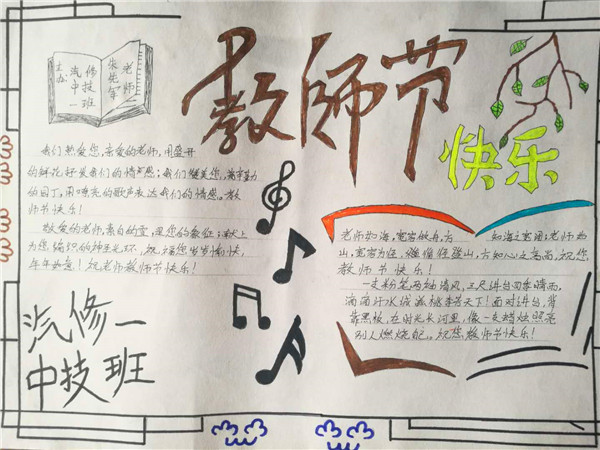 主办 汽修
中技
一班
老师
教师节
快乐
我们热爱您,亲爱的老师,用盛开
的鲜花抒发我们的情感;我们赞美您,辛勤
的园丁,用嘹亮的歌声表达我们的情感。教
师节快乐!
敬爱的老师,素白的雪,是您的象征;献上
为您编织的神圣光环,祝福您岁岁愉快,
年年如意!祝老师教师节快乐!
汽修一
中技班
老师如海,宽容做舟,方知海之宽阔;老师如
山,宽容为径,循循径登山,方知山之高大,祝您
教师节快乐!
一支粉笔两袖清风,三尺讲台四季晴雨,
滴滴汗水成就桃李芳天下!面对讲台,背
靠黑板,在时光长河里,像一支蜡烛照亮
别人燃烧自己。祝您,教师节快乐!